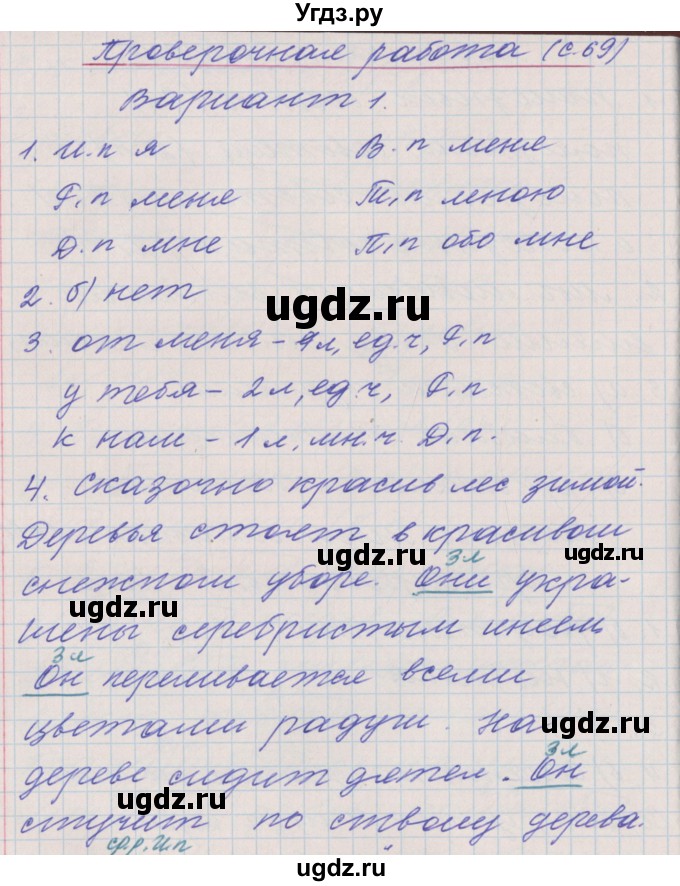 Угдз.ру
Проверочная работа (с.69)
Вариант 1.
1. И.п я В.п меня
Р.п меня Т.п мною
Д.п мне П.п обо мне
2. б) нет
ugdz.ru
3. от меня – 1л, ед.ч, Р.п
у тебя – 2л, ед.ч, Р.п
к нам – 1л, мн.ч. Д.п.
4. Сказочно красив лес зимой.
Деревья стоят в красивом
ugdz.ru ugdz.ru
3л
снежном уборе. Они укра-
ugdz.ru
шены серебристым инеем.
3л
Он переливается всеми
цветами радуги. На
ugdz.ru
3л
дереве сидит дятел. Он
ugdz.ru
стучит по стволу дерева.
ср.р. И.п
ugdz.ru